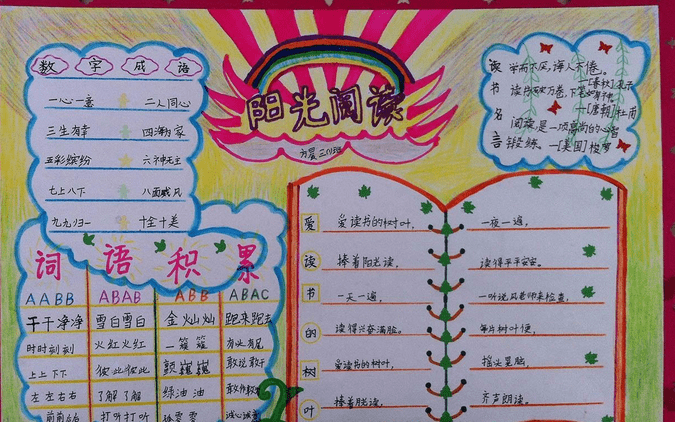 数字成语
一心一意 二人同心
三生有幸 四海为家
五彩缤纷 六神无主
七上八下 八面威风
九九归一 十全十美
阳光阅读
方晨三(1)班
读书名言
学而不厌,诲人不倦。
—[春秋]孔子
读书破万卷,下笔如有神。
—[唐朝]杜甫
阅读是一项高尚的心智
锻炼。—[美国]梭罗
词语积累
AABB ABAB ABB ABAC
干干净净 雪白雪白 金灿灿 跑来跑去
时时刻刻 火红火红 一簇簇 有头有尾
上上下下 彼此彼此 颤巍巍 敢说敢干
左左右右 了解了解 绿油油
打听打听 诚心诚意
爱读书的树叶
爱读书的树叶,
捧着阳光读,
一天一遍,
读得兴奋满脸。
爱读书的树叶,
捧着月光读,
一夜一遍,
读得平平安安。
一听说风老师来检查,
每片树叶便,
摇头晃脑,
齐声朗读。